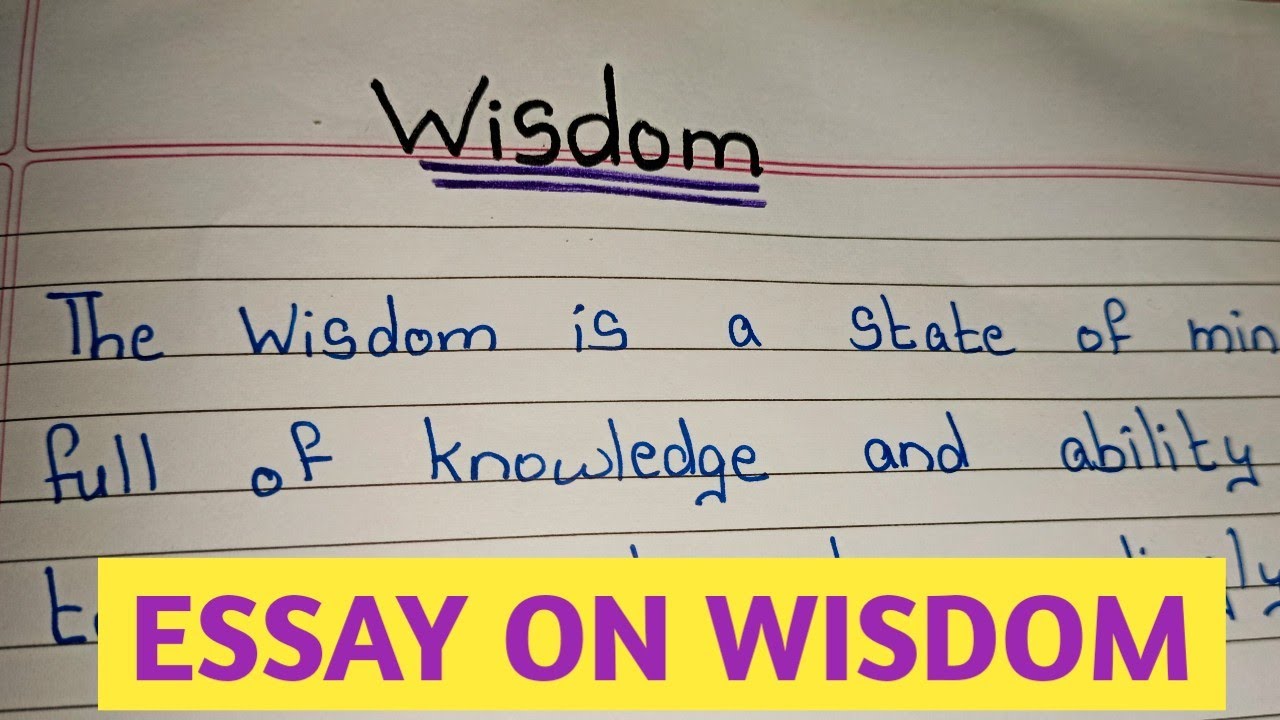 Wisdom
The Wisdom is a state of min
full of knowledge and ability
ESSAY ON WISDOM